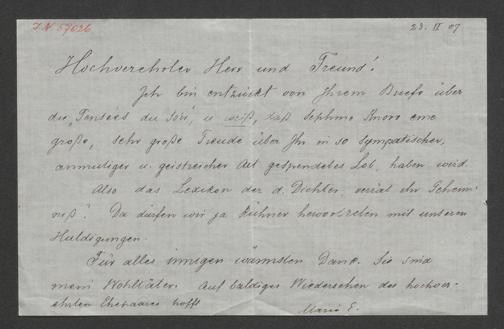 I.N. 57626
23. II 07
Hochverehrter Herr und Freund!
Ich bin entzückt von Ihrem Briefe über
die „Pensées du Soir", u weiß, daß Sephine Knorr eine
große, sehr große Freude über Ihr in so sympatischer,
anmutiger u. geistreicher Art gespendetes Lob, haben wird.
Also das Lexikon der d. Dichter verrät ihr Geheim
niß? Da dürfen wir ja kühner hervortreten mit unseren
Huldigungen.
Für alles innigen wärmsten Dank. Sie sind
mein Wohltäter. Auf baldiges Wiedersehen des hochver-
ehrten Ehepaares hofft
Marie E.